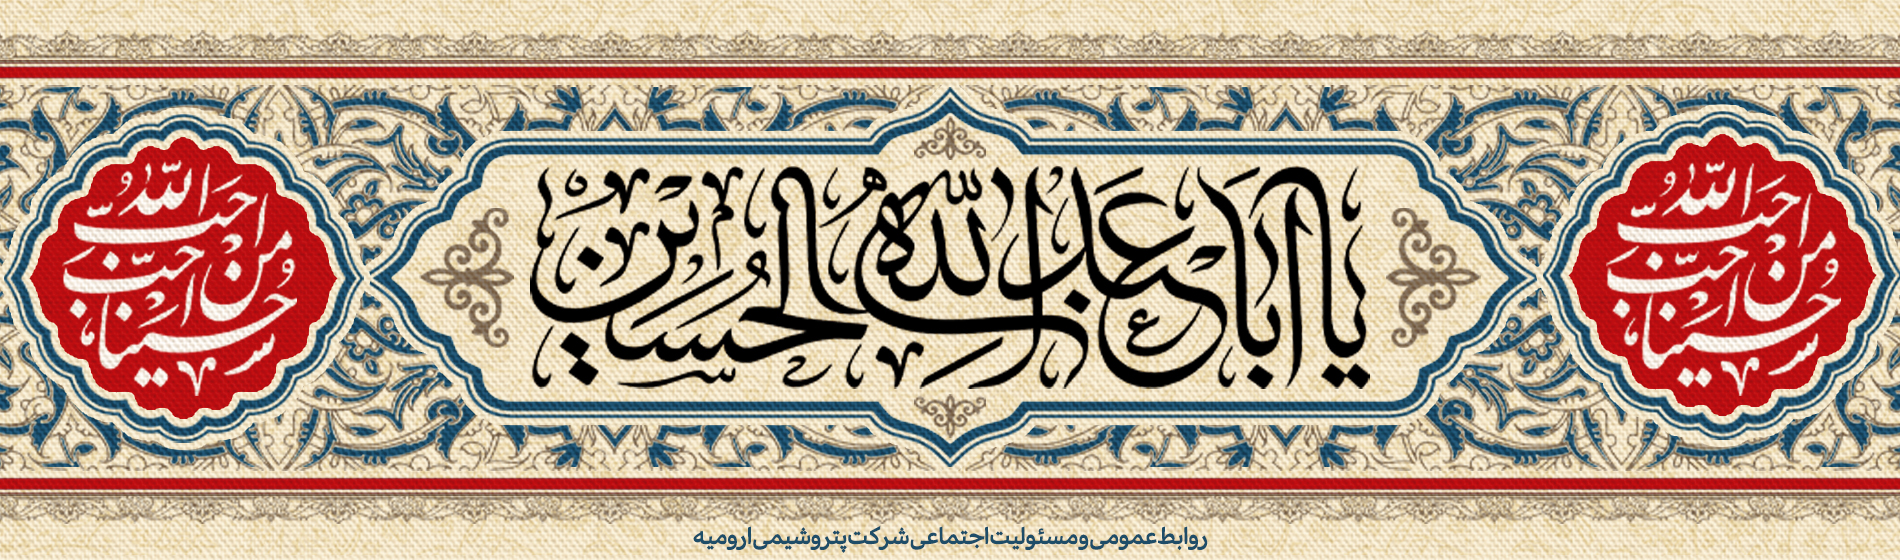 احب الله
من احب
حسینا
یا اباعبدالله الحسین
احب الله
من احب
حسینا
روابط عمومی و مسئولیت اجتماعی شرکت پتروشیمی ارومیه